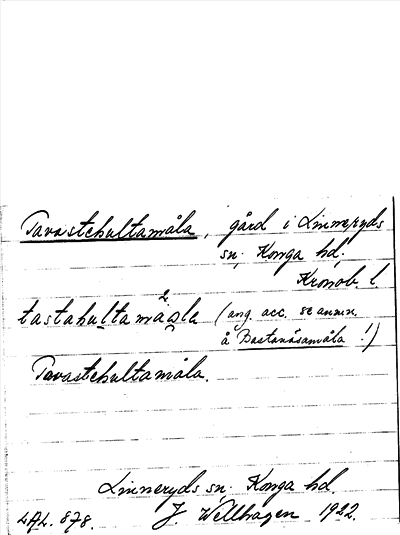 Tavastehultamåla, gård i Linneryds
sn, Konga hd.
Kronob. l.
tastahultamåla (ang. acc. se anmn.
å Bastanäsamåla!)
Tavastehultamåla.
Linneryds sn, Konga hd.
LAL. 878. J. Wellhagen 1922.